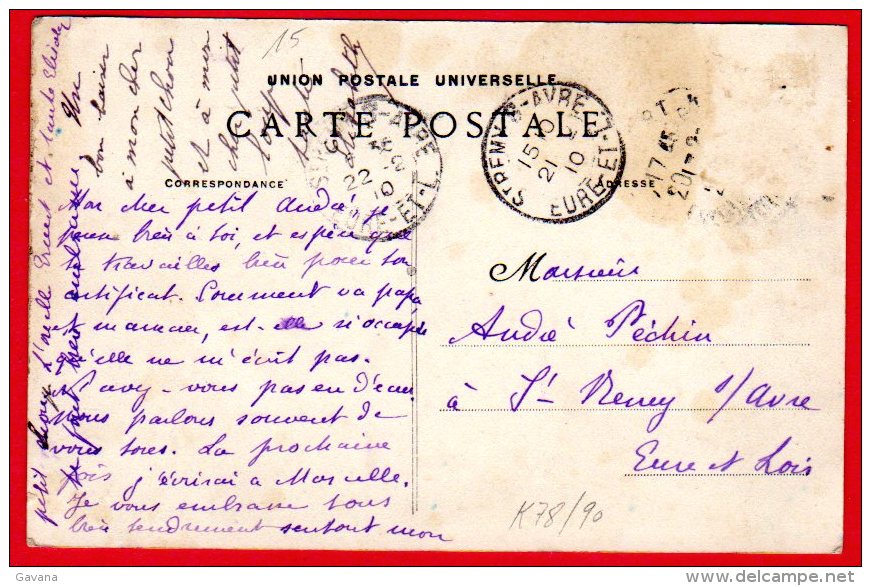 15
UNION POSTALE UNIVERSELLE
CARTE POSTALE
CORRESPONDANCE
ADRESSE
ST REMY-S-AVRE
15 10
21 -2
10
EURE-ET-L.
22 -2
10
EURE-ET-L.
17 45
20 -2
Mon cher petit André, je
pense bien à toi, et espère que
tu travailles bien pour ton
certificat. Comment va papa,
et maman, est-elle si occupée
qu'elle ne m'écrit pas.
N'avez-vous pas eu d'eau
nous parlons souvent de
vous tous. La prochaine
fois j'écrirai à Marcelle.
Je vous embrasse tous
bien tendrement surtout mon
petit chou. L'oncle Ernest et tante
Un
bon baiser
à mon cher
petit chou
et à mon
cher petit
loup
Monsieur
André Péchin
à St Remy s/ Avre
Eure et Loir
K78/90
Gavana
http://www.delcampe.net